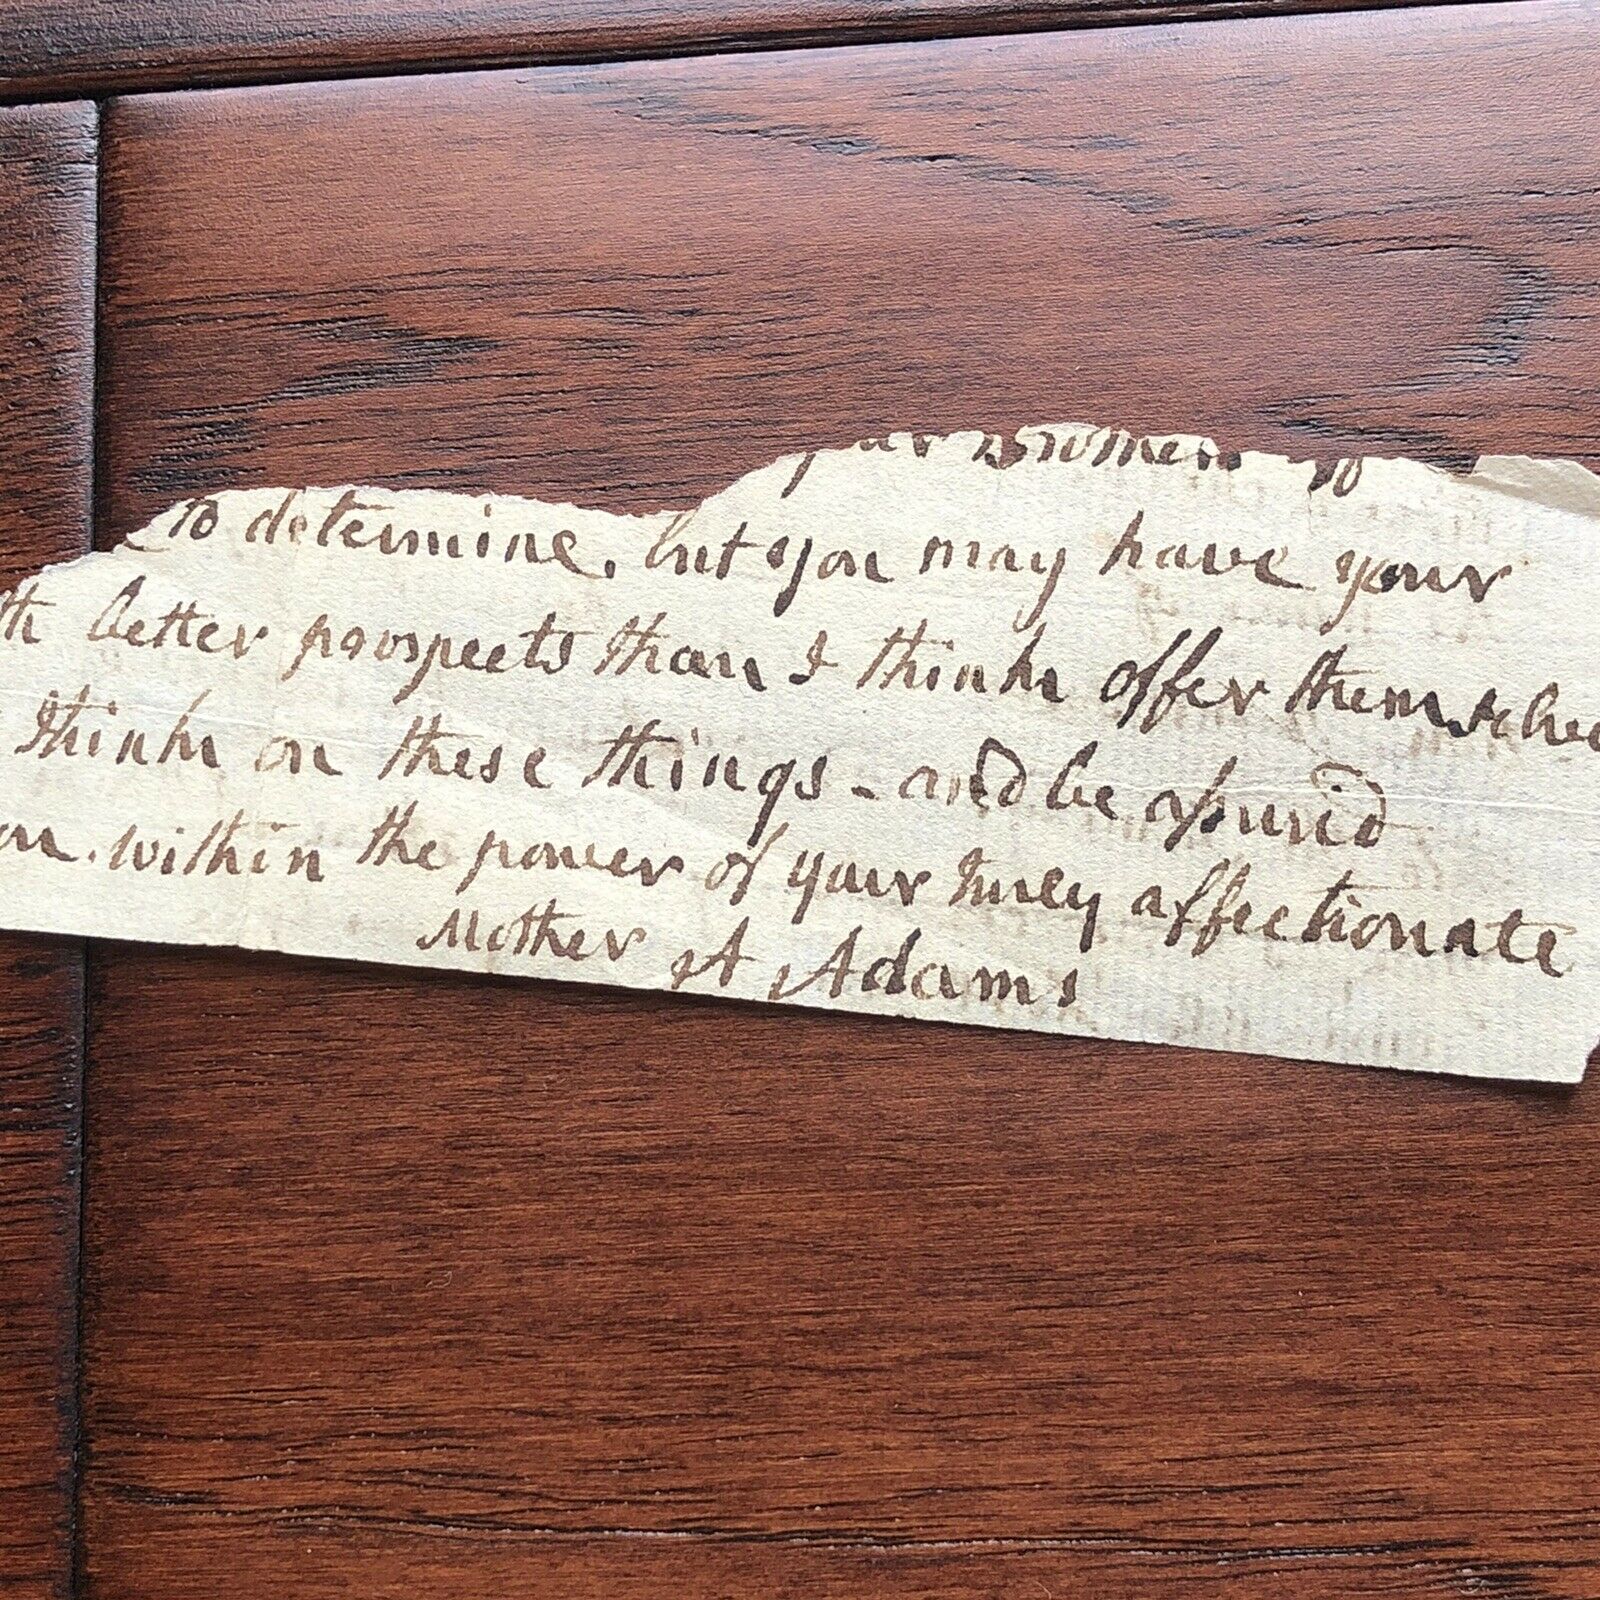 to determine, but you may have your
th better prospects than I think offer themselves
think on these things - and be assured
on. within the power of your truly affectionate
Mother A Adams